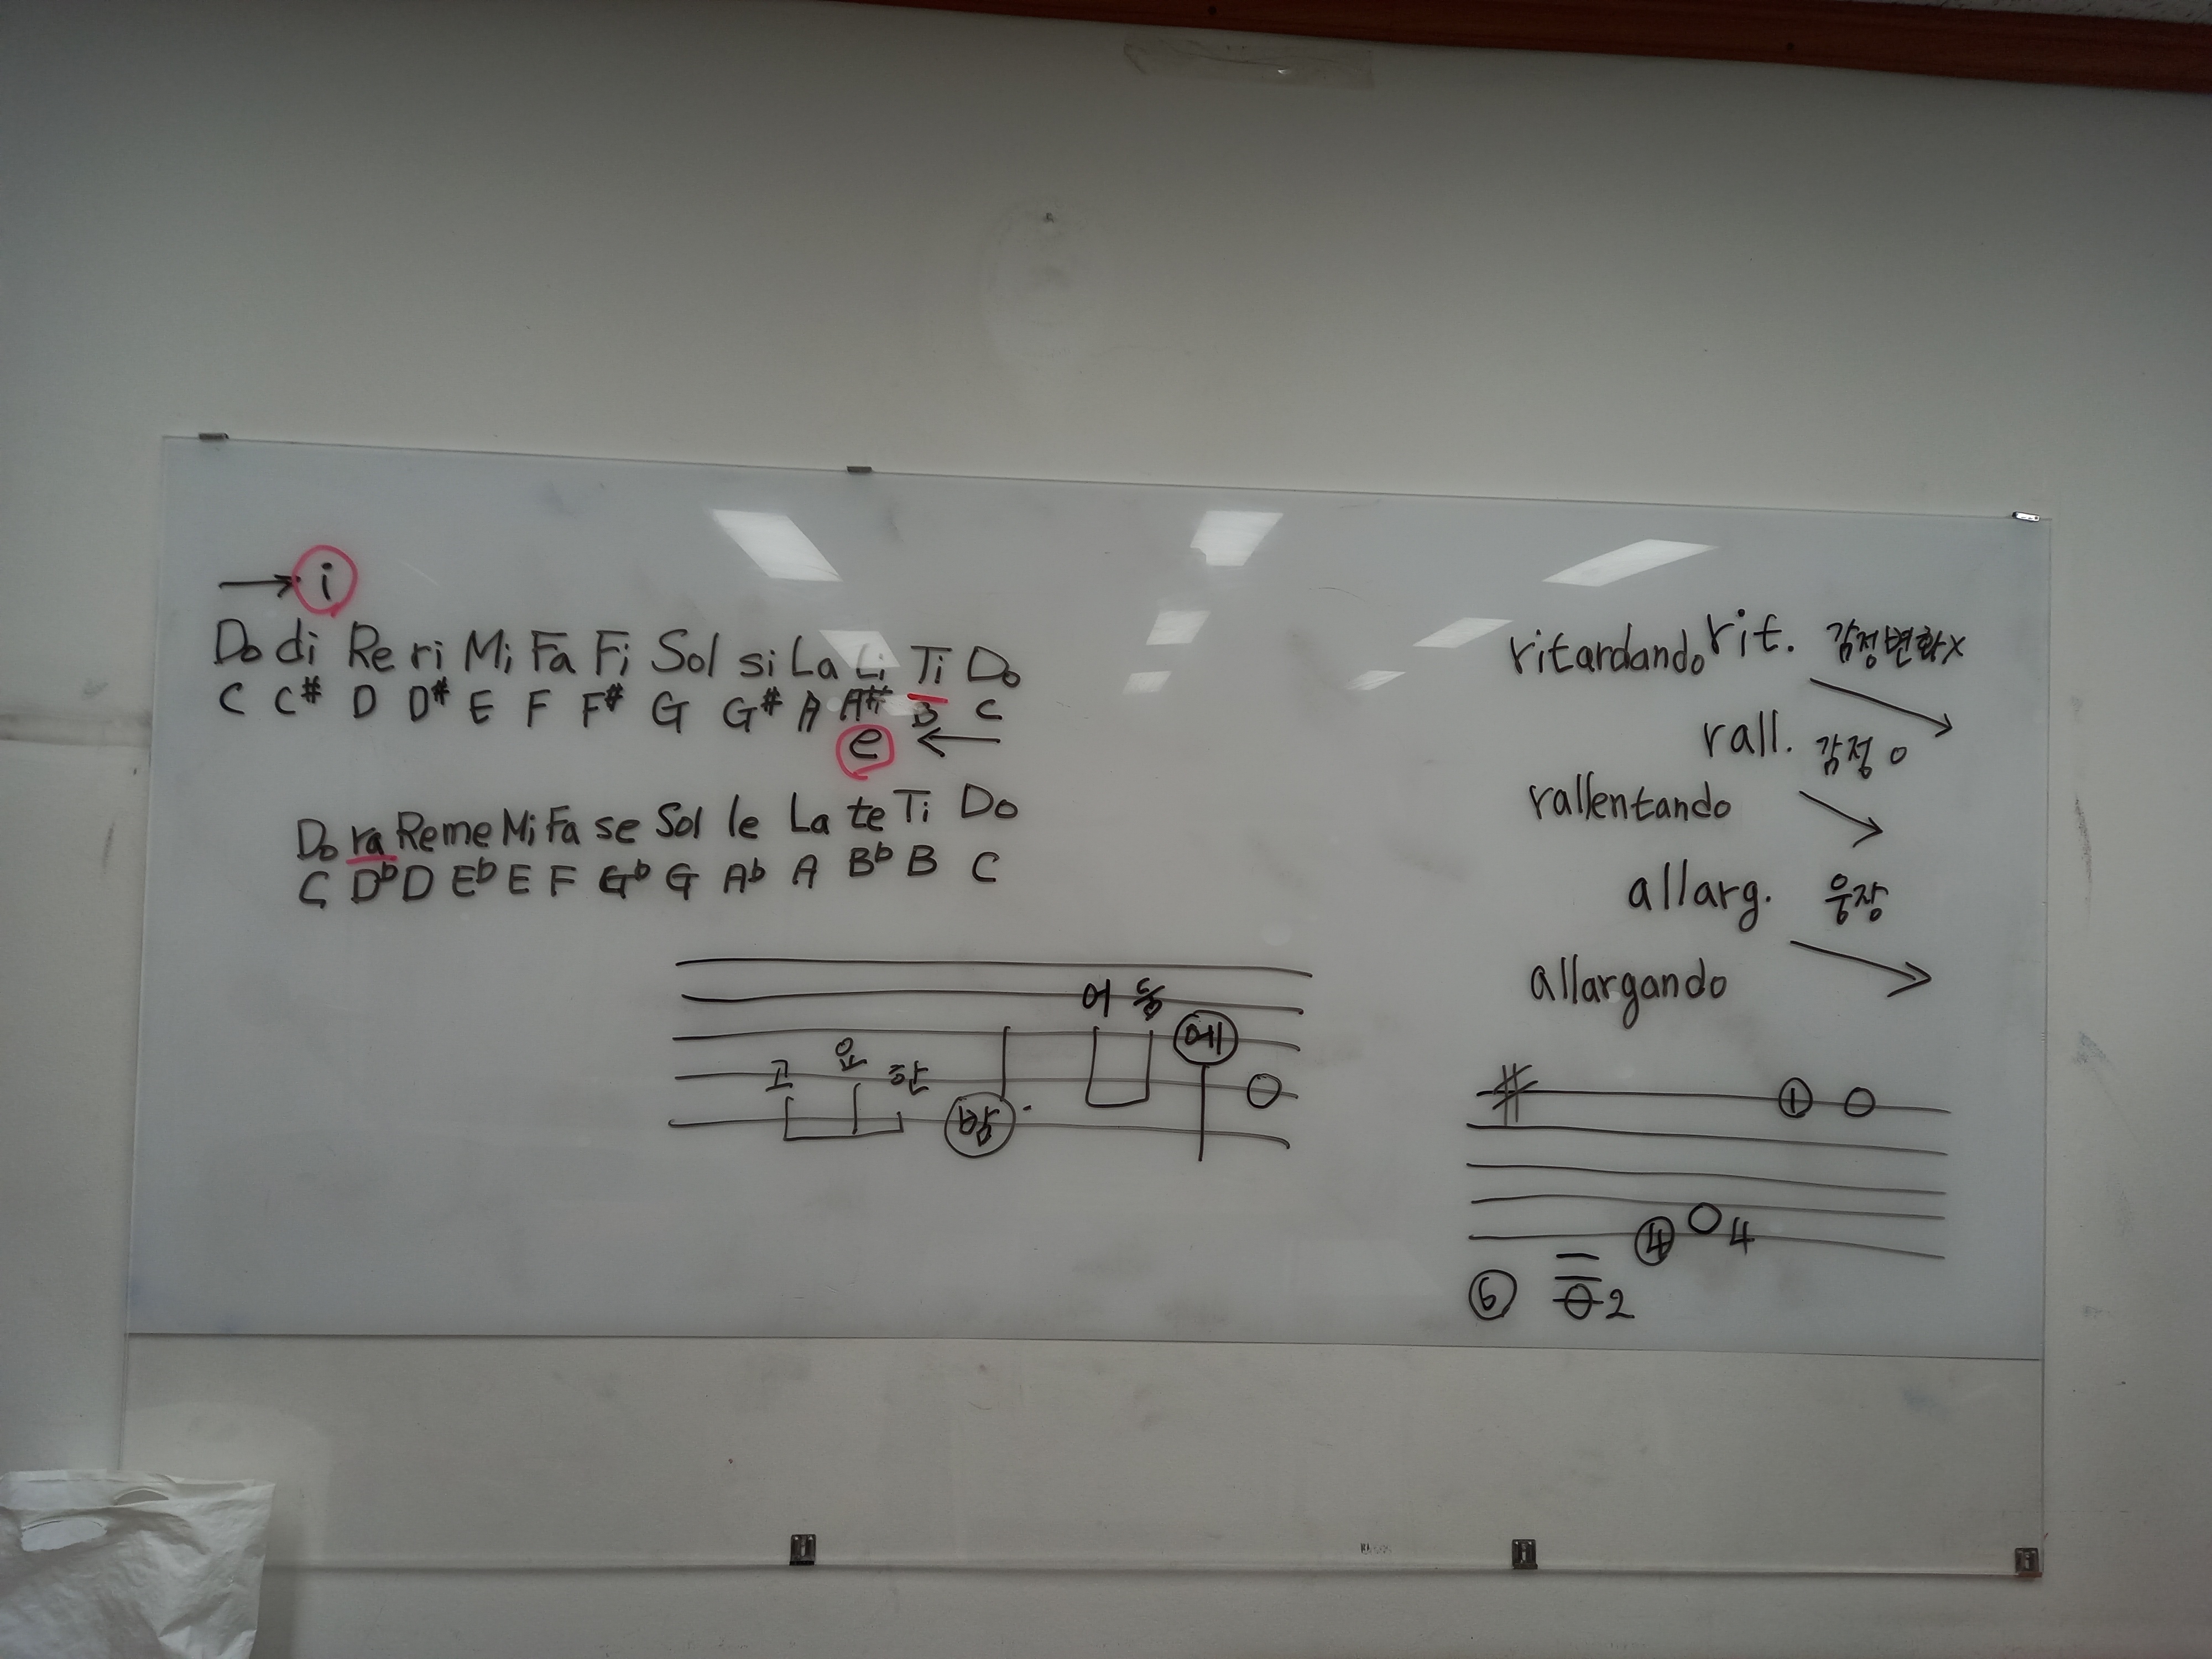 → i
Do di Re ri Mi Fa Fi Sol si La Li Ti Do
C C# D D# E F F# G G# A A# B C
e ←
Do ra Re me Mi Fa se Sol le La te Ti Do
C Db D Eb E F Gb G Ab A Bb B C
고 요 한 밤 어 둠 에
ritardando rit. 감정변화x
rall. 감정 o
rallentando
allarg. 웅장
allargando
# ①
④ 4
⑥ 2